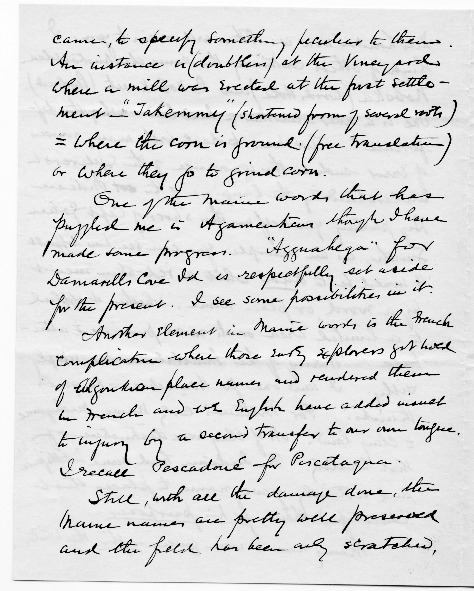 came, to specify something peculiar to them.
An instance is (doubtless) at the Vineyard
where a mill was erected at the first settle-
ment — "Takemmy" (shortened form of several roots)
= where the corn is ground. (free translation)
or where they go to grind corn.
One of the Maine words that has
puzzled me is Agamenticus though I have
made some progress. "Agguahega" for
Damarills Cove Id. is respectfully set aside
for the present. I see some possibilities in it.
Another element in Maine words is the French
complication where those early explorers got hold
of Algonkian place names and rendered them
in French and we English have added insult
to injury by a second transfer to our own tongue.
I recall Pescadoné for Piscataqua.
Still, with all the damage done, the
Maine names are pretty well preserved
and the field has been only scratched,